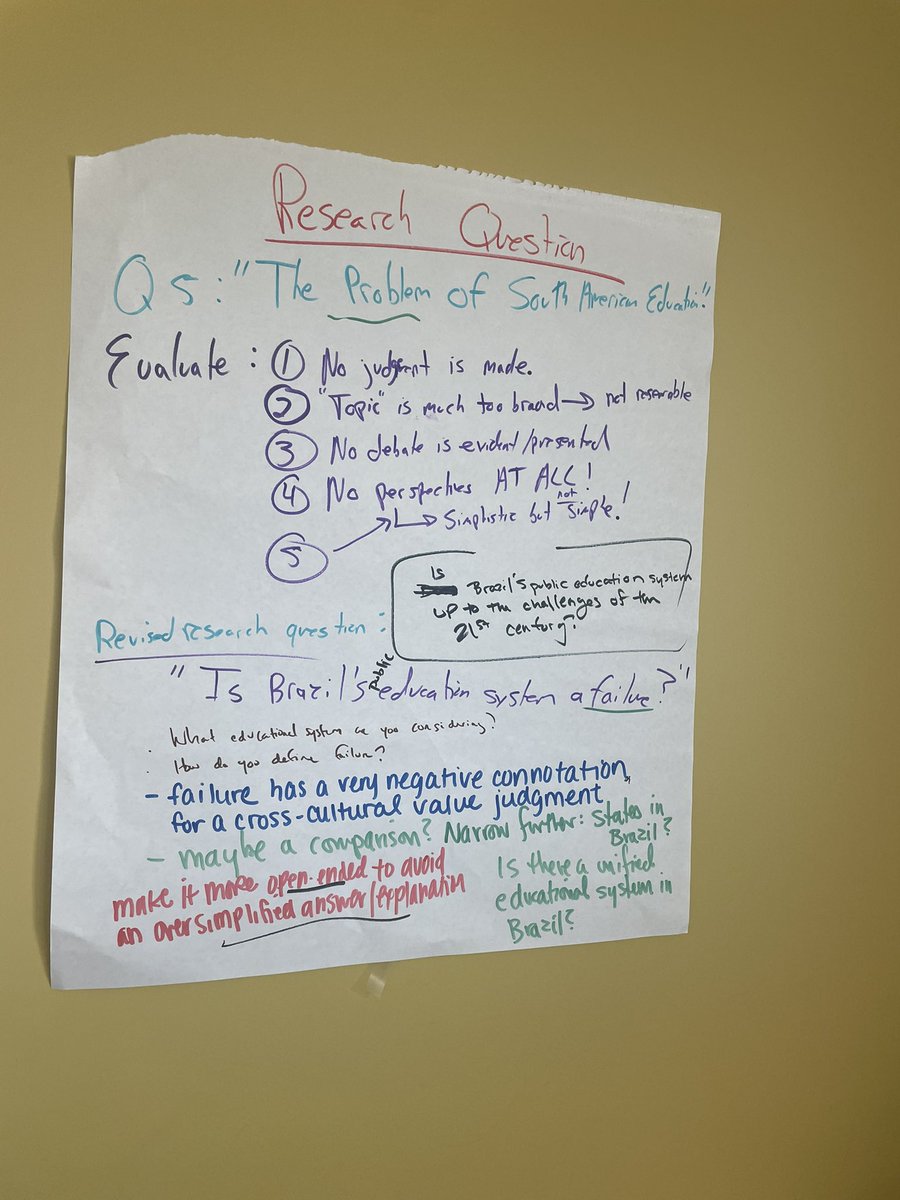 Research Question
Q5: "The Problem of South American Education"
Evaluate: ① No judgment is made.
② "Topic" is much too broad → not researable
③ No debate is evident/presented
④ No perspectives AT ALL!
↳ Simplistic but not simple!
⑤
Is Brazil's public education system
up to the challenges of the
21st century?
Revised research question:
"Is Brazil's public education system a failure?"
· What educational system are you considering?
· How do you define failure?
- failure has a very negative connotation,
for a cross-cultural value judgment
- maybe a comparison? Narrow further: States in
Brazil?
make it more open-ended to avoid
an oversimplified answer/explanation
Is there a unified
educational system in
Brazil?